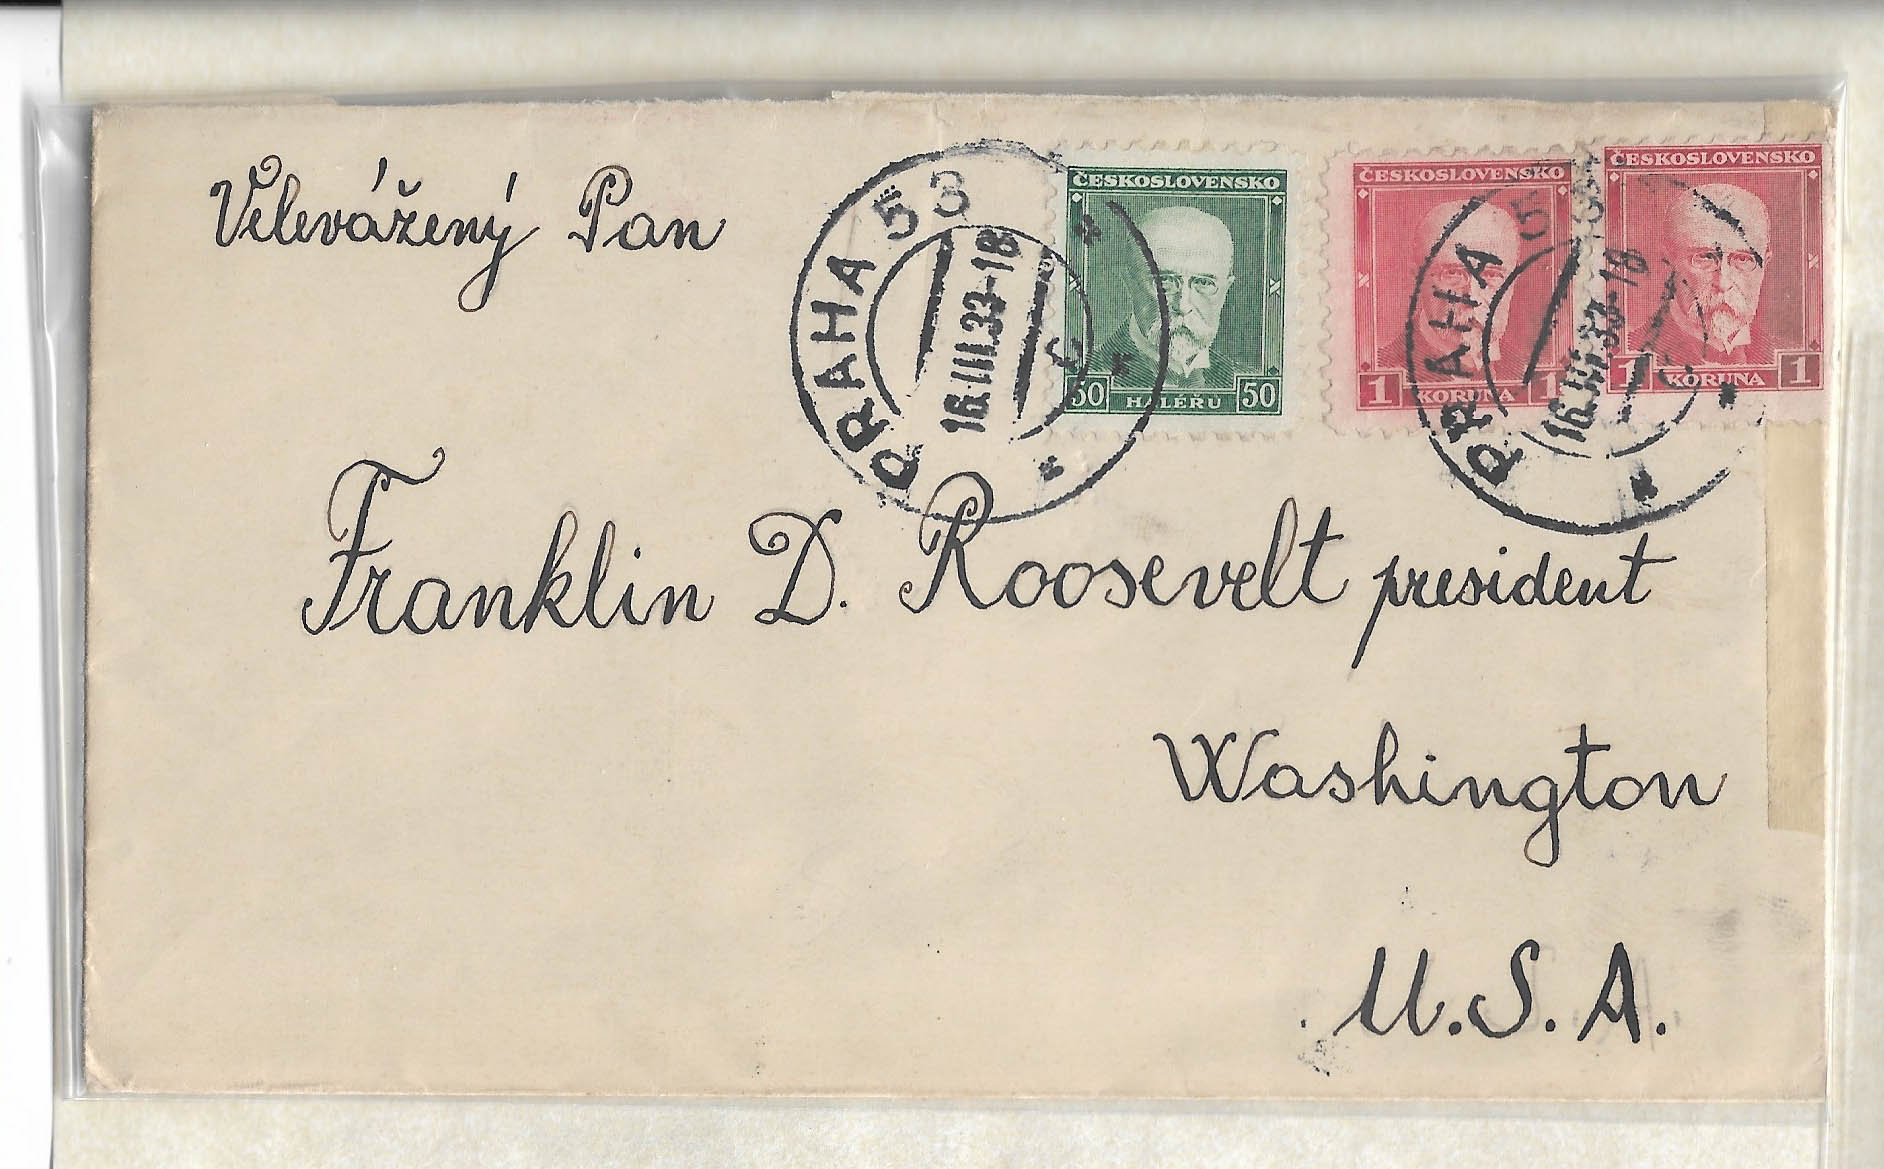 Velevážený Pan
PRAHA 53
16.III.33-18
ČESKOSLOVENSKO
50 HALÉŘŮ 50
ČESKOSLOVENSKO
1 KORUNA 1
ČESKOSLOVENSKO
1 KORUNA 1
PRAHA 53
16.III.33-18
Franklin D. Roosevelt president
Washington
U.S.A.